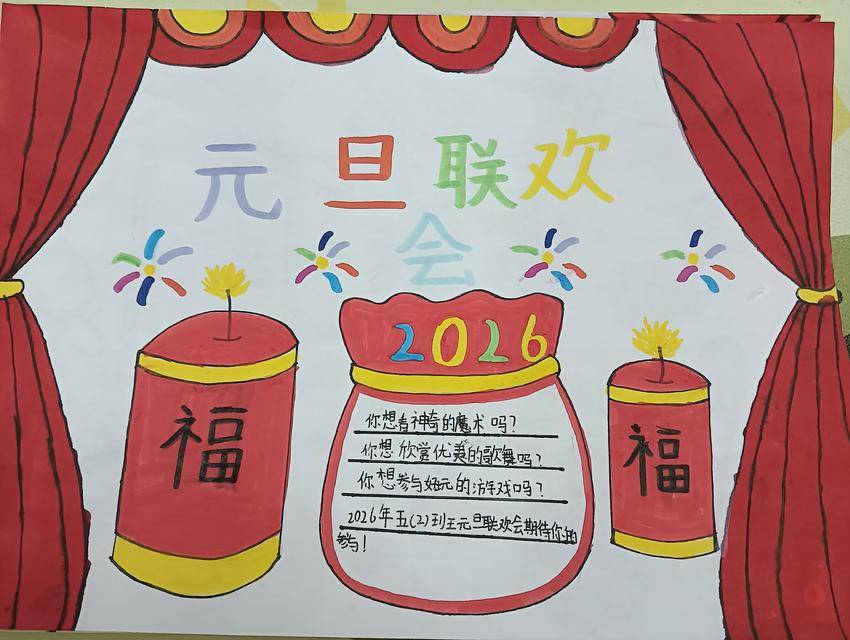 元旦联欢
会
2026
福
福
你想看神奇的魔术吗?
你想欣赏优美的歌舞吗?
你想参与好玩的游戏吗?
2026年五(2)班元旦联欢会期待你的
参与!